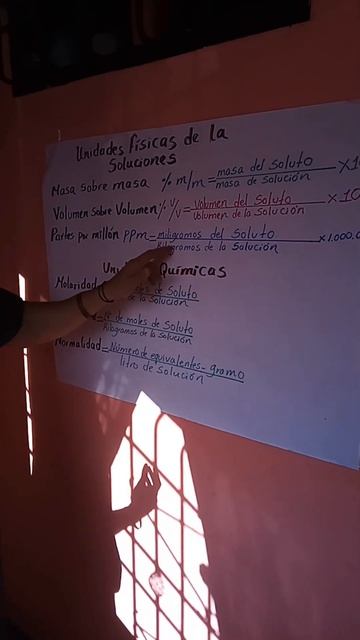 Unidades físicas de la
Soluciones
Masa sobre masa % m/m = masa del Soluto X1
masa de Solución
Volumen Sobre Volumen % V/V = Volumen del Soluto X 10
Volumen de la Solución
Partes por millón PPM = miligramos del Soluto X1.000.0
Kilogramos de la Solución
Químicas
Molaridad de Soluto
de la Solución
= N° de moles de Soluto
Kilogramos de la Solución
Normalidad = Número de equivalentes - gramo
litro de Solución